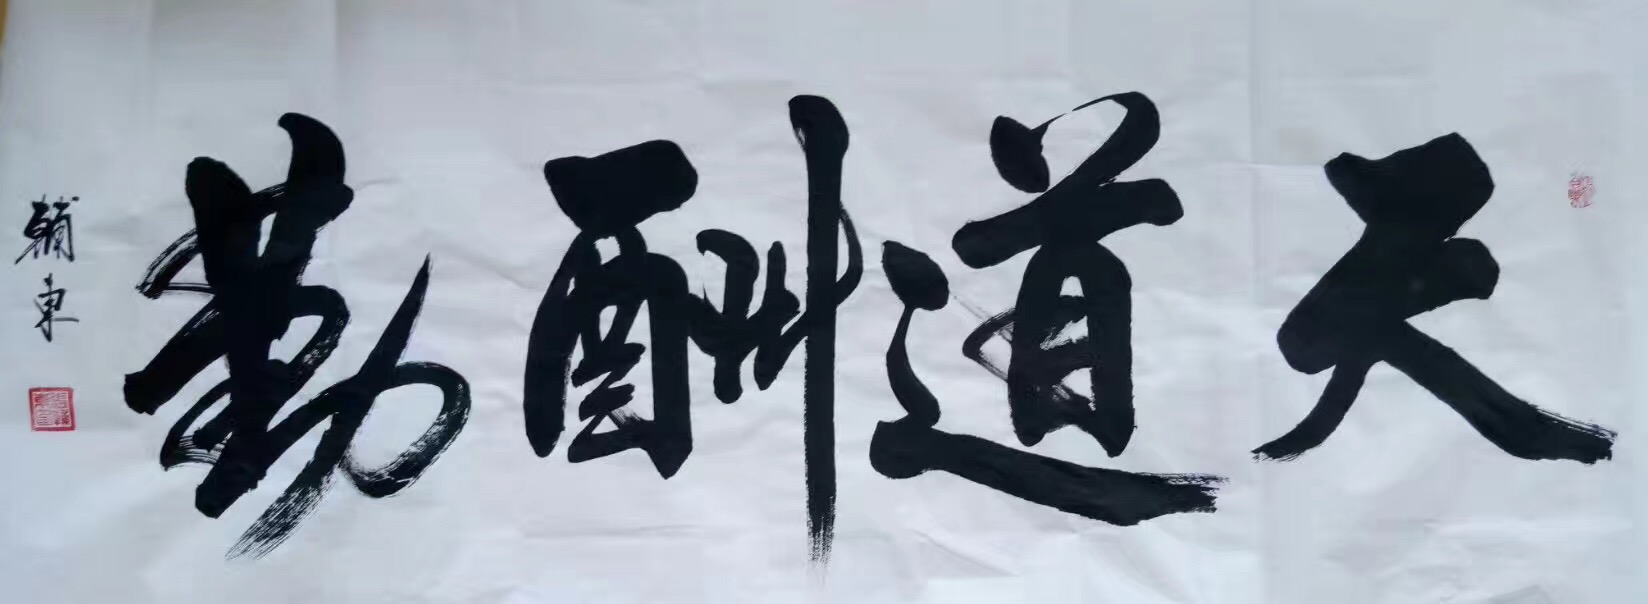 天道酬勤
輔東